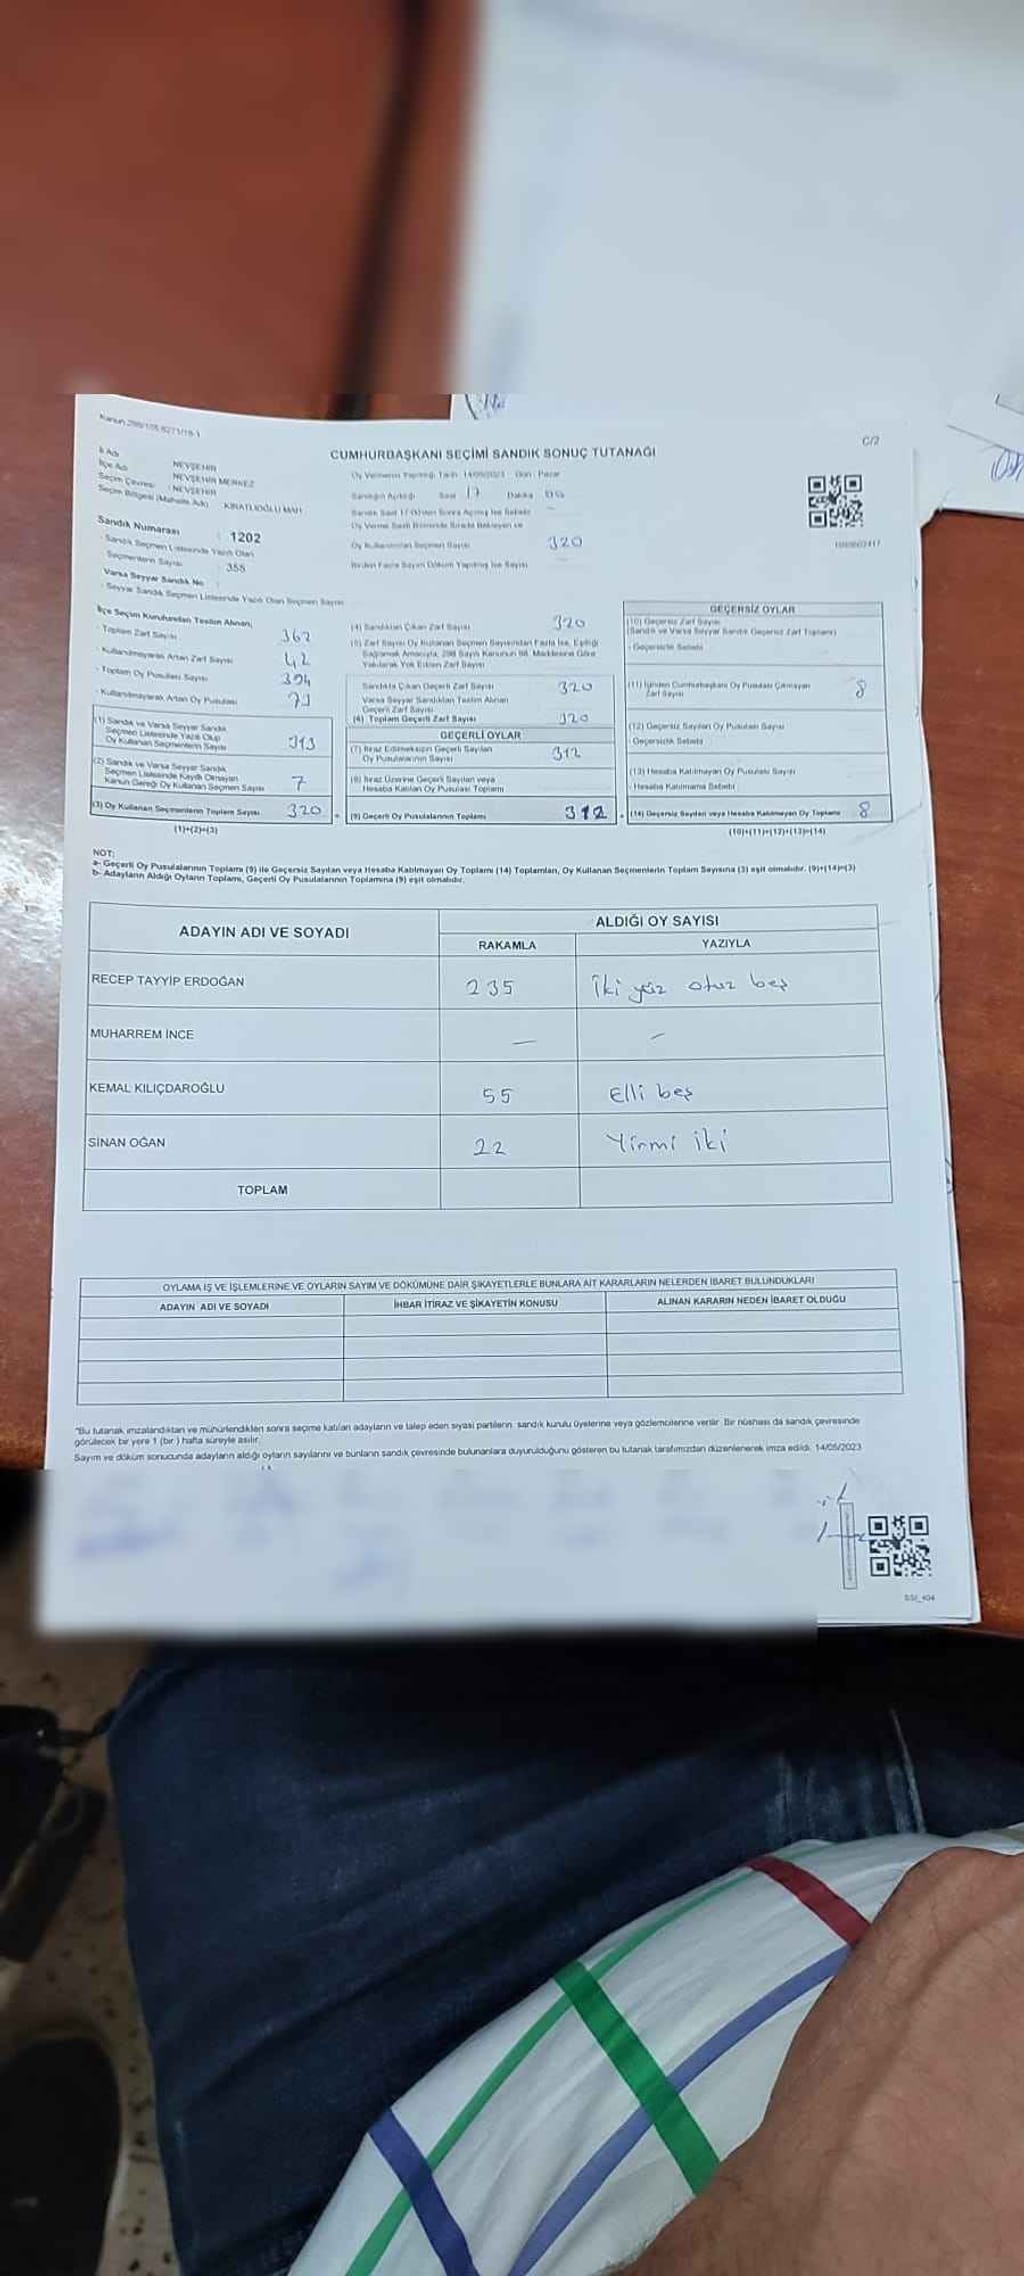 Kanun 298/105 6271/18-1
C/2
CUMHURBAŞKANI SEÇİMİ SANDIK SONUÇ TUTANAĞI
İl Adı NEVŞEHİR
İlçe Adı NEVŞEHİR MERKEZ
Seçim Çevresi : NEVŞEHİR
Seçim Bölgesi (Mahalle Adı) KIRATLIOĞLU MAH.
Sandık Numarası : 1202
- Sandık Seçmen Listesinde Yazılı Olan
Seçmenlerin Sayısı : 355
Varsa Seyyar Sandık No :
- Seyyar Sandık Seçmen Listesinde Yazılı Olan Seçmen Sayısı
Oy Vermenin Yapıldığı Tarih 14/05/2023 Gün : Pazar
Sandığın Açıldığı Saat 17 Dakika
Oy Kullanılan Seçmen Sayısı 320
Birden Fazla Sayım Döküm Yapılmış İse Sayısı
İlçe Seçim Kurulundan Teslim Alınan;
- Toplam Zarf Sayısı 362
- Kullanılmayarak Artan Zarf Sayısı 42
- Toplam Oy Pusulası Sayısı
- Kullanılmayarak Artan Oy Pusulası
(1) Sandık ve Varsa Seyyar Sandık
Seçmen Listesinde Yazılı Olup
Oy Kullanan Seçmenlerin Sayısı 313
(2) Sandık ve Varsa Seyyar Sandık
Seçmen Listesinde Kaydı Olmayan
Kanun Gereği Oy Kullanan Seçmen Sayısı 7
(3) Oy Kullanan Seçmenlerin Toplam Sayısı 320
(1)+(2)=(3)
(4) Sandıktan Çıkan Zarf Sayısı 320
(5) Zarf Sayısı Oy Kullanan Seçmen Sayısından Fazla İse, Eşitliği
Sağlamak Amacıyla, 298 Sayılı Kanunun 98. Maddesine Göre
Yakılarak Yok Edilen Zarf Sayısı
Sandıkta Çıkan Geçerli Zarf Sayısı 320
Varsa Seyyar Sandıktan Teslim Alınan
Geçerli Zarf Sayısı
(6) Toplam Geçerli Zarf Sayısı 320
GEÇERLİ OYLAR
(7) İtiraz Edilmeksizin Geçerli Sayılan
Oy Pusulalarının Sayısı 312
(8) İtiraz Üzerine Geçerli Sayılan veya
Hesaba Katılan Oy Pusulası Toplamı
(9) Geçerli Oy Pusulalarının Toplamı 312
GEÇERSİZ OYLAR
(10) Geçersiz Zarf Sayısı
(Sandık ve Varsa Seyyar Sandık Geçersiz Zarf Toplamı)
- Geçersizlik Sebebi
(11) İçinden Cumhurbaşkanı Oy Pusulası Çıkmayan
Zarf Sayısı 8
(12) Geçersiz Sayılan Oy Pusulası Sayısı
- Geçersizlik Sebebi
(13) Hesaba Katılmayan Oy Pusulası Sayısı
- Hesaba Katılmama Sebebi
(14) Geçersiz Sayılan veya Hesaba Katılmayan Oy Toplamı 8
(10)+(11)+(12)+(13)=(14)
NOT:
a- Geçerli Oy Pusulalarının Toplamı (9) ile Geçersiz Sayılan veya Hesaba Katılmayan Oy Toplamı (14) Toplamları, Oy Kullanan Seçmenlerin Toplam Sayısına (3) eşit olmalıdır. (9)+(14)=(3)
b- Adayların Aldığı Oyların Toplamı, Geçerli Oy Pusulalarının Toplamına (9) eşit olmalıdır.
ADAYIN ADI VE SOYADI
ALDIĞI OY SAYISI
RAKAMLA YAZIYLA
RECEP TAYYİP ERDOĞAN 235 İki yüz otuz beş
MUHARREM İNCE — —
KEMAL KILIÇDAROĞLU 55 Elli beş
SİNAN OĞAN 22 Yirmi iki
TOPLAM
OYLAMA İŞ VE İŞLEMLERİNE VE OYLARIN SAYIM VE DÖKÜMÜNE DAİR ŞİKAYETLERLE BUNLARA AİT KARARLARIN NELERDEN İBARET BULUNDUKLARI
ADAYIN ADI VE SOYADI İHBAR İTİRAZ VE ŞİKAYETİN KONUSU ALINAN KARARIN NEDEN İBARET OLDUĞU
"Bu tutanak imzalandıktan ve mühürlendikten sonra seçime katılan adayların ve talep eden siyasi partilerin sandık kurulu üyelerine veya gözlemcilerine verilir. Bir nüshası da sandık çevresinde
görülecek bir yere 1 (bir) hafta süreyle asılır.
Sayım ve döküm sonucunda adayların aldığı oyların sayılarını ve bunların sandık çevresinde bulunanlara duyurulduğunu gösteren bu tutanak tarafımızdan düzenlenerek imza edildi. 14/05/2023